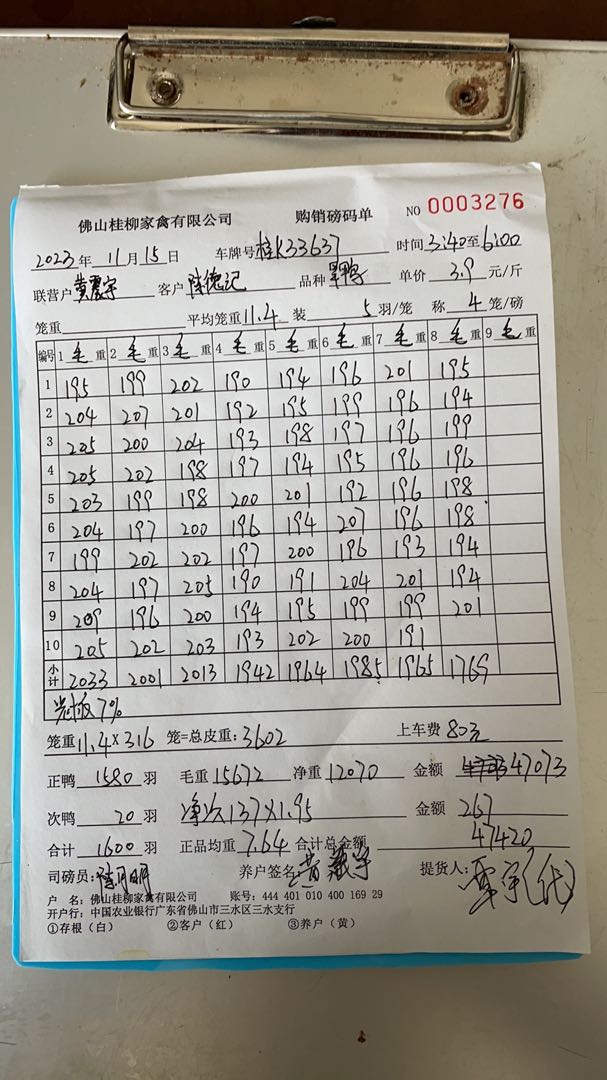 佛山桂柳家禽有限公司 购销磅码单 NO 0003276
2023年 11月 15日 车牌号 桂K33637 时间 3:40至6:00
联营户 黄震宇 客户 陆德记 品种 单价 3.9 元/斤
笼重 平均笼重 11.4 装 5 羽/笼 称 4 笼/磅
编号 1 毛重 2 毛重 3 毛重 4 毛重 5 毛重 6 毛重 7 毛重 8 毛重 9 毛重
1 195 199 202 190 194 196 201 195
2 204 207 201 192 195 199 196 194
3 205 200 204 193 198 197 196 199
4 205 202 198 197 194 195 196 196
5 203 199 198 200 201 192 196 198
6 204 197 200 196 194 207 196 198
7 199 202 202 197 200 196 193 194
8 204 197 205 190 191 204 201 194
9 209 196 200 194 195 199 199 201
10 205 202 203 193 202 200 191
小计 2033 2001 2013 1942 1964 1985 1965 1769
7%
笼重 11.4×316 笼=总皮重: 3602 上车费 80元
正鸭 1580 羽 毛重 15672 净重 12070 金额 47073
次鸭 20 羽 净次137×1.95 金额 267
合计 1600 羽 正品均重 7.64 合计总金额 47420
司磅员: 养户签名: 黄震宇 提货人:
户 名: 佛山桂柳家禽有限公司 账号: 444 401 010 400 169 29
开户行: 中国农业银行广东省佛山市三水区三水支行
①存根(白) ②客户(红) ③养户(黄)